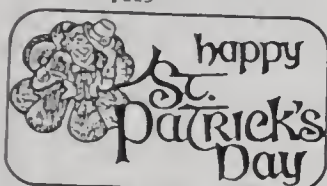 happy
St.
Patrick's
Day